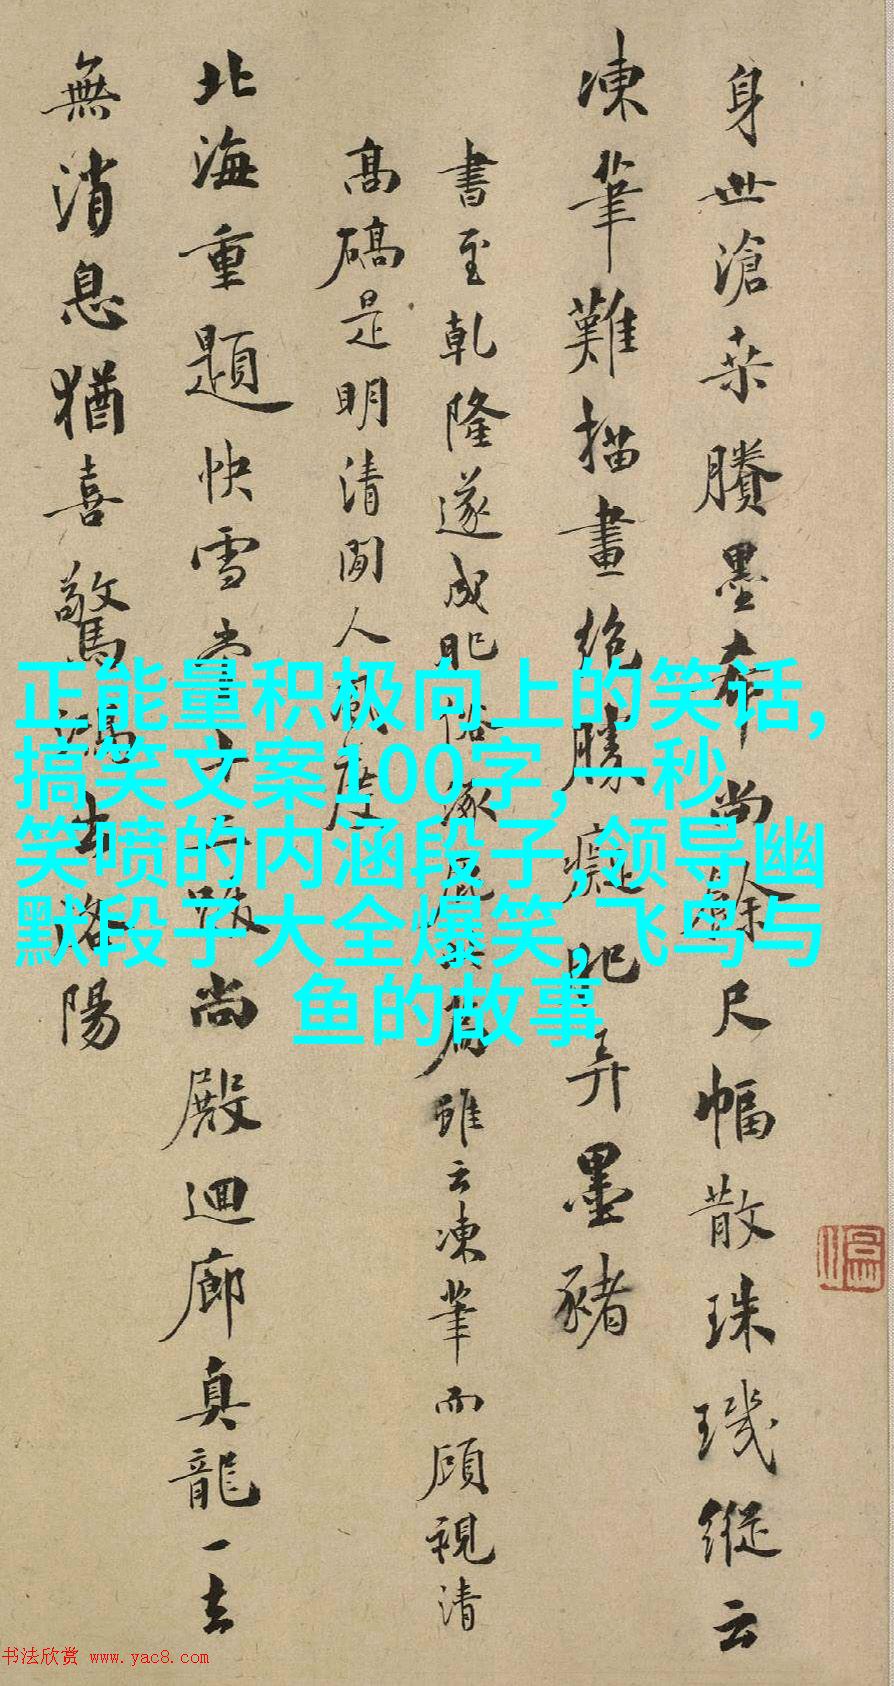 身世滄桑賸墨希尚餘尺幅散珠璣縱云
凍筆難描畫絶勝癡肥弄墨豬
書至乾隆遂成肥俗涿雖云凍筆而顧視清
高碻是明清間人風度
北海重題快雪堂尚殿迴廊真龍一去
無消息猶喜驚鴻出洛陽
正能量积极向上的笑话,
搞笑文案100字,一秒
笑喷的内涵段子,领导幽
默段子大全爆笑，飞鸟与
鱼的故事
书法欣赏 www.yac8.com